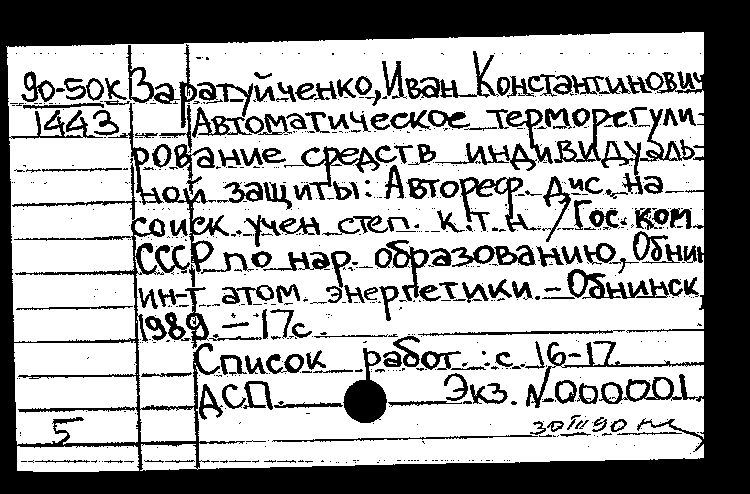 90-50к Заратуйченко, Иван Константинович
1443 Автоматическое терморегули-
рование средств индивидуаль-
ной защиты: Автореф. дис. на
соиск. учен степ. к.т.н / Гос. ком.
СССР по нар. образованию, Обнин
ин-т атом. энергетики. – Обнинск,
1989. – 17с.
Список работ.: с. 16-17.
ДСП. Экз. №000001
5 30 III 90